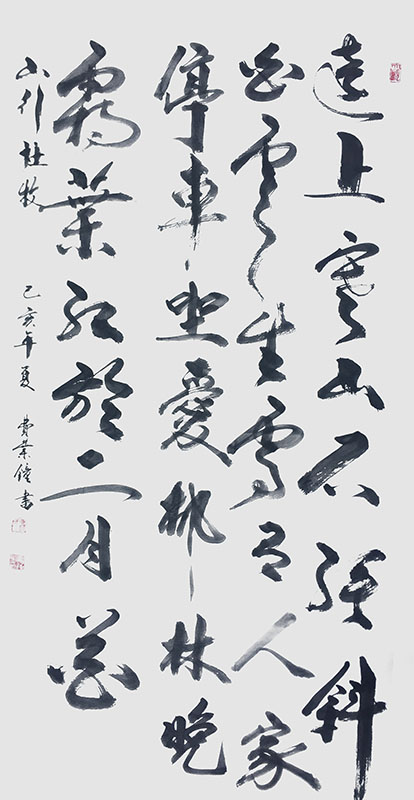 遠上寒山石徑斜
白雲生處有人家
停車坐愛楓林晚
霜葉紅於二月花
山行杜牧 己亥年夏 費業書